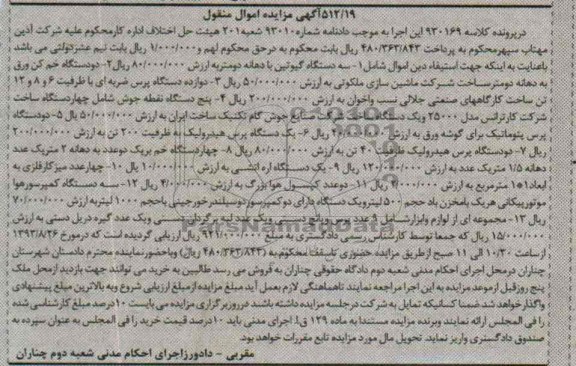 ۵۱۲/۱۹آگهی مزایده اموال منقول
درپرونده کلاسه ۹۳۰۱۶۹ این اجرا به موجب دادنامه شماره۹۳۰۱۰ شعبه۲۰۱ هیئت حل اختلاف اداره کارمحکوم علیه شرکت آذین
مهتاب سپهرمحکوم به پرداخت ۴۸۰/۳۶۳/۸۴۳ ریال بابت محکوم به درحق محکوم لهم و۱/۰۰۰/۰۰۰ ریال بابت نیم عشردولتی می باشد
باعنایت به اینکه جهت استیفاء دین اموال شامل۱- سه دستگاه گیوتین با دهانه دومتربه ارزش ۸۰/۰۰۰/۰۰۰ ریال۲- دودستگاه خم کن ورق
به دهانه دومترساخت شرکت ماشین سازی ملکوتی به ارزش ۵۰/۰۰۰/۰۰۰ ریال ۳- دوازده دستگاه پرس ضربه ای با ظرفیت ۶ و ۸ و ۱۲
تن ساخت کارگاههای صنعتی جلالی نسب واخوان به ارزش ۲۰۰/۰۰۰/۰۰۰ ریال ۴- پنج دستگاه نقطه جوش شامل چهاردستگاه ساخت
شرکت کارترانس مدل ۲۵۰۰۰ ویک دستگاه صنایع جوش گام تکنیک ساخت ایران به ارزش ۵۰/۰۰۰/۰۰۰ ریال ۵- دودستگاه
پرس پنوماتیک برای گوشه ورق به ارزش ریال ۶- یک دستگاه پرس هیدرولیک به ظرفیت ۲۰۰ تن به ارزش ۲۰۰/۰۰۰/۰۰۰
ریال ۷- دودستگاه پرس هیدرولیک ظرفیت ۴۰ تن به ارزش ۸۰/۰۰۰/۰۰۰ ریال ۸- چهاردستگاه خم بریک دوعدد به دهانه ۲ متریک عدد
دهانه ۱/۵ متریک عدد به ارزش ۱۲۰/۰۰۰/۰۰۰ ریال ۹- یک دستگاه اره آتشی به ارزش ریال ۱۰- چهارعدد میزکارفلزی به
ابعاد۱*۱ مترمربع به ارزش ۴/۰۰۰/۰۰۰ ریال ۱۱- دوعدد کپسول هوا بزرگ به ارزش ۴/۰۰۰/۰۰۰ ریال ۱۲- سه دستگاه کمپرسورهوا
موتورپیکانی هریک بامخزن باد حجم ۵۰۰ لیترویک دستگاه دارای دو کمپرسوردوسیلندرخورجینی باحجم ۱۰۰۰ لیتربه ارزش ۷۰/۰۰۰/۰۰۰
ریال ۱۳- مجموعه ای از لوازم وابزارشامل ۹ عدد پرس وپانچ دستی ویک عدد لبه برگردان دستی ویک عدد گیره دریل دستی به ارزش
۱۵/۰۰۰/۰۰۰ ریال که جمعا توسط کارشناس رسمی دادگستری به مبلغ ریال ارزیابی گردیده است که درمورخ ۱۳۹۳/۸/۲۶
ازساعت ۱۰/۳۰ الی ۱۱ صبح ازطریق مزایده حضوری تاسقف محکوم به (۴۸۰/۳۶۳/۸۴۳ ریال) وباحضورنماینده محترم دادستان شهرستان
چناران درمحل اجرای احکام مدنی شعبه دوم دادگاه حقوقی چناران به فروش می رسد طالبین به خرید می توانند جهت بازدید ازمحل ملک
پنج روزقبل ازموعد مزایده به این اجرا مراجعه نمایند تاهماهنگی لازم بعمل آید مبلغ مزایده ازمبلغ ارزیابی شروع وبه بالاترین مبلغ پیشنهادی
واگذارخواهد شد ضمنا کسانیکه تمایل به شرکت درجلسه مزایده داشته باشند درروزبرگزاری مزایده می بایست ۱۰درصد مبلغ کارشناسی شده
را فی المجلس ارائه نمایند وبرنده مزایده مستندا به ماده ۱۲۹ ق.ا. اجرای مدنی باید ۱۰درصد قیمت خرید را فی المجلس به عنوان سپرده به
صندوق دادگستری واریز نماید. تحویل مال مورد مزایده تابع مقررات خواهد بود.
مقربی - دادورزاجرای احکام مدنی شعبه دوم چناران